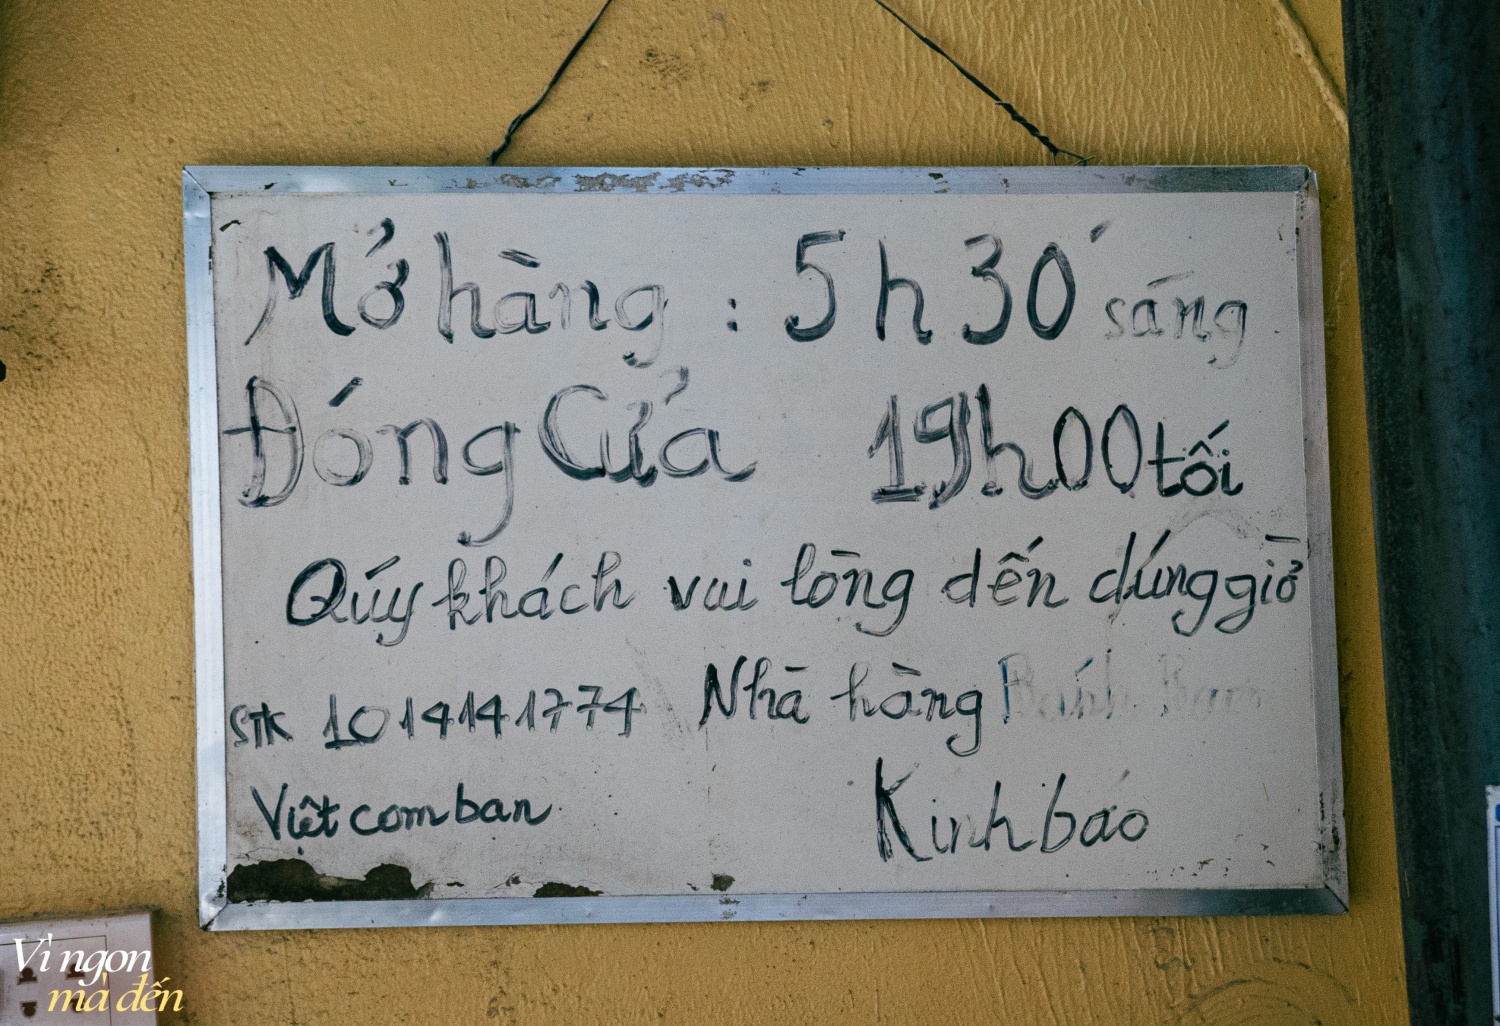 Mở hàng : 5h30' sáng
Đóng Cửa 19h00 tối
Qúy khách vui lòng đến đúng giờ
STK 1014141774 Nhà hàng
Việt com ban Kinh báo
Vì ngon
mà đến